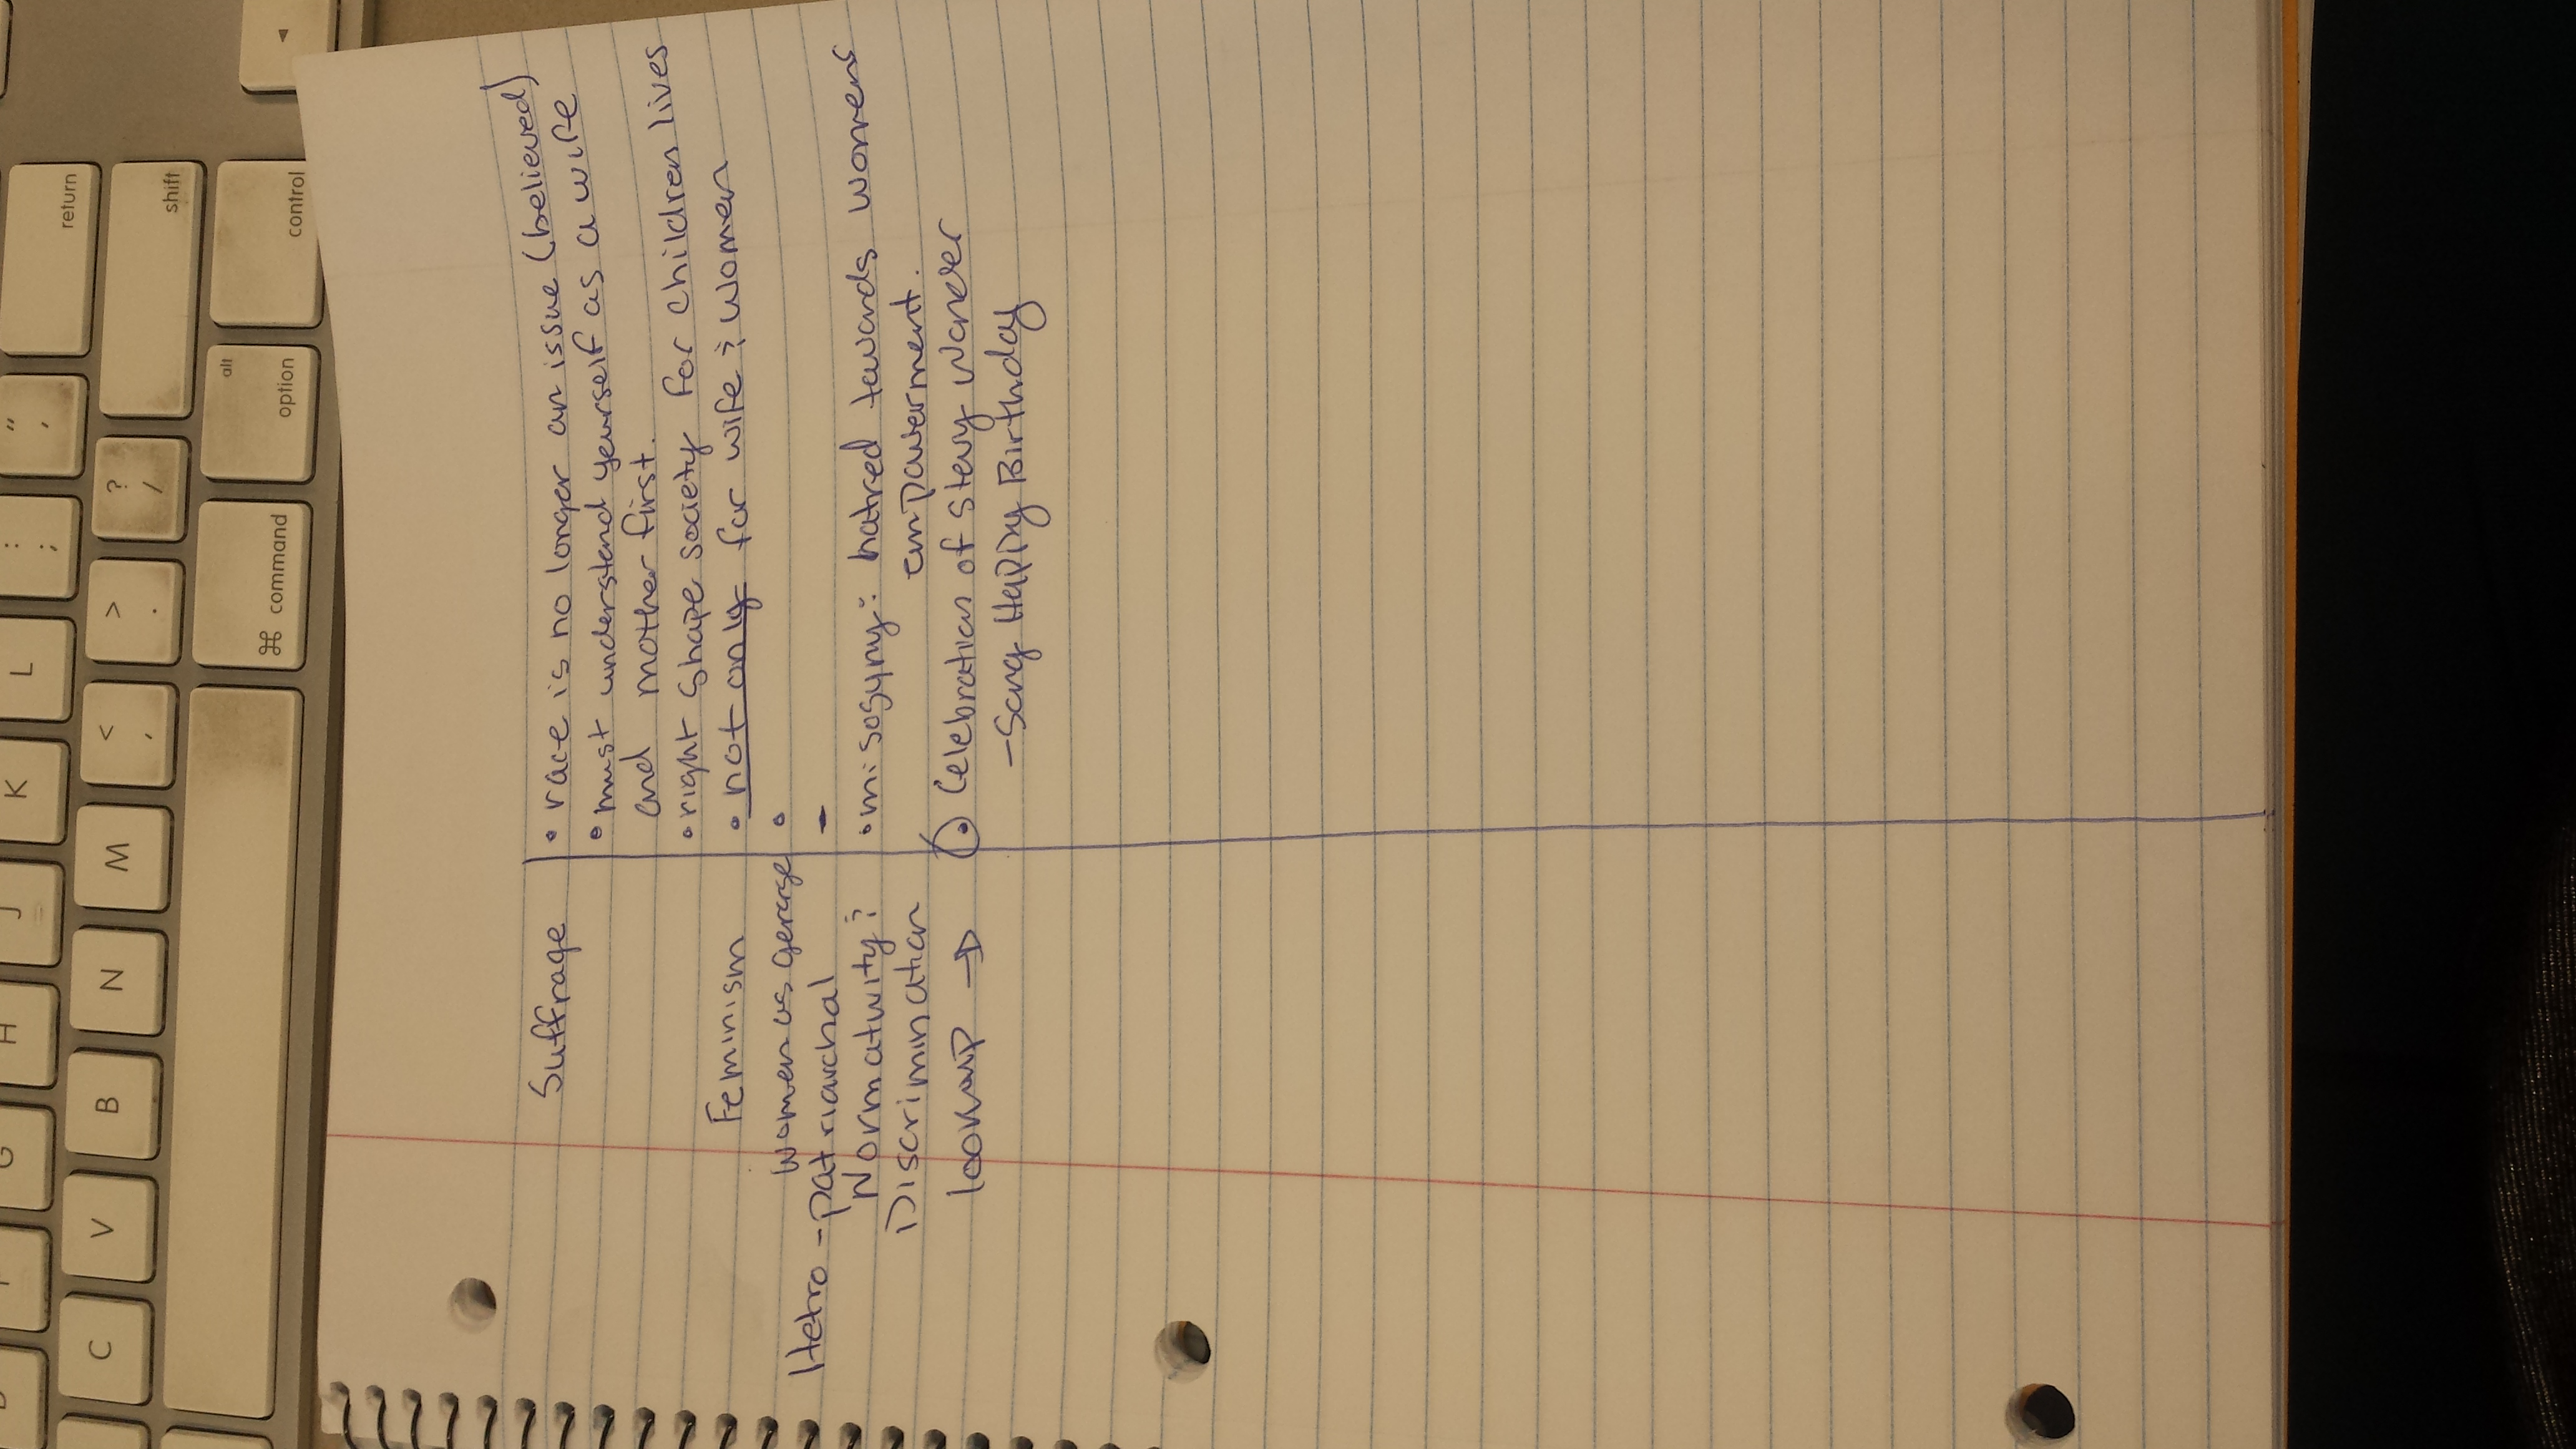 Suffrage • race is no longer an issue (believed)
• must understand yourself as a wife
and mother first.
• right shape society for children lives
Feminism • not only for wife & women
women us •
Hetro - patriarchal -
Normatwity & • misogyny: hatred towards womens
Discrimination empowerment.
lookup → • Celebration of stevy wonder
- Song Happy Birthday
return
shift
control
alt
option
⌘ command
" '
? /
: ;
> .
< ,
L
K
J
H
G
M
N
B
V
C